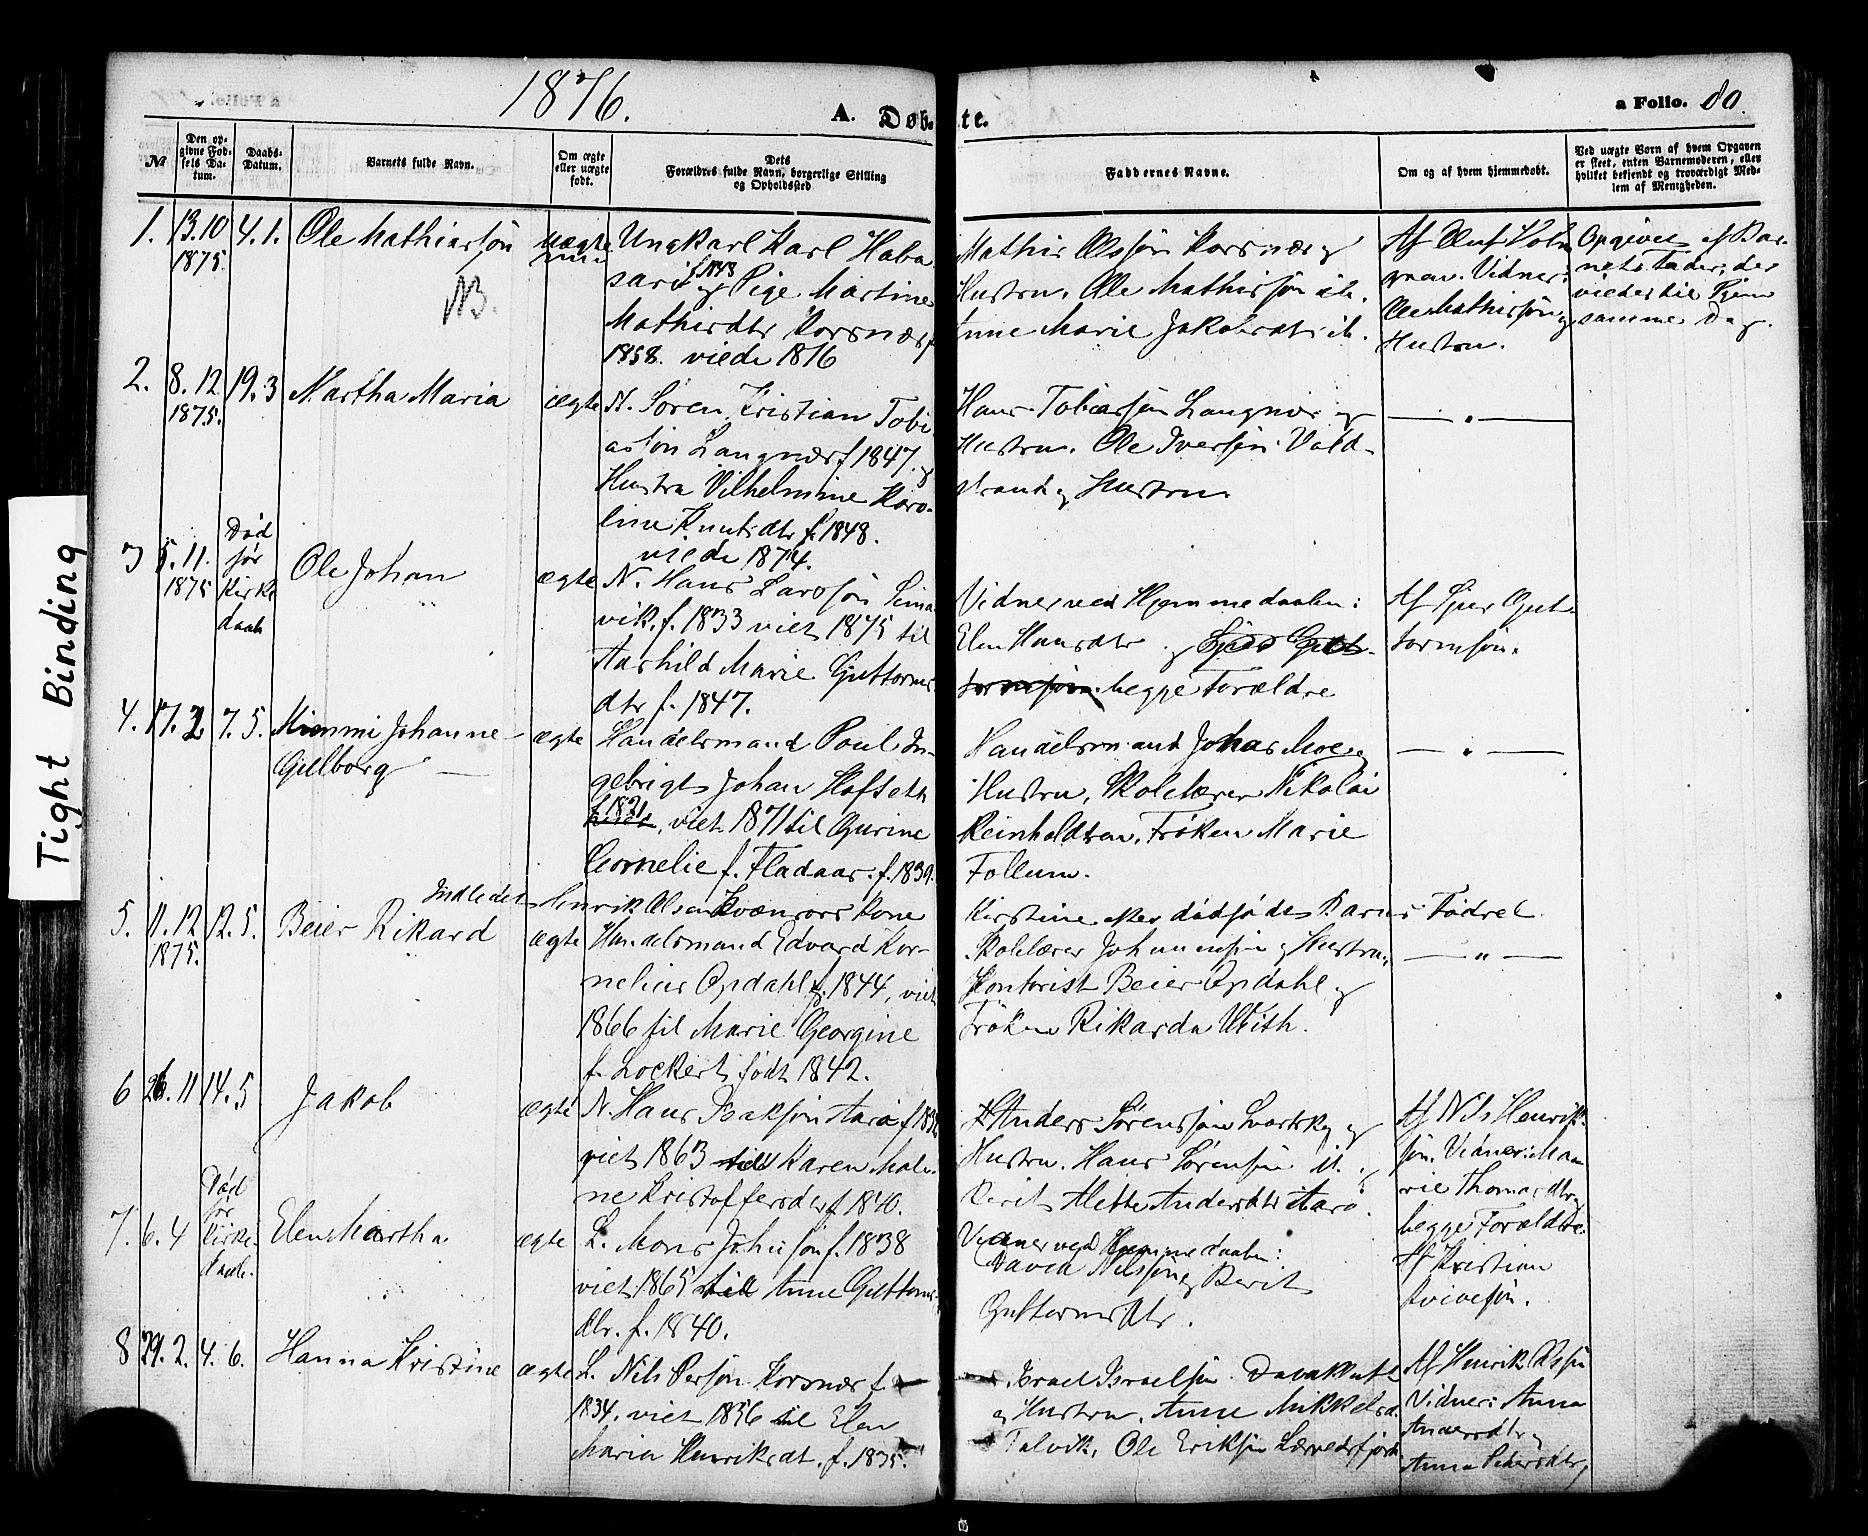 1876.
A. Døbte.
a Folio. 80.
No
Den opgivne Fødsels Datum.
Daabs-Datum.
Barnets fulde Navn.
Om ægte eller uægte født.
Dets Forældres fulde Navn, borgerlige Stilling og Opholdssted
Faddernes Navne.
Om og af hvem hjemmedøbt.
Ved uægte Børn af hvem Opgaven er skeet, enten Barnemoderen, eller hvilket bekjendt og troværdigt Medlem af Menigheden.
1. 13.10 1875. 4.1. Ole Mathiassøn
NB.
uægte
Ungkarl Karl Haba-
sari f. 1848 og Pige Martine
Mathisdtr Korsnæs f
1858. viede 1876
Mathis Olssøn Korsnæs og
Hustru. Ole Mathissøn ib.
Anne Marie Jakobsdtr ib.
Af Oluf Holm-
gren. Vidner:
Ole Mathissøn og
Hustru.
Opgivet af Bar-
nets Fader; der
viedes til Pigen
samme Dag.
2. 8.12 1875. 19.3 Martha Maria
ægte
N. Søren Kristian Tobi-
assøn Langnæs f 1847. og
Hustru Vilhelmine Karo-
line Knutsdtr f. 1848.
viede 1874.
Hans Tobiassøn Langnæs og
Hustru. Ole Iversøn Vold-
strand og Hustru.
— " —
3 5.11. 1875
Død
før
Kirke
daab
Ole Johan
ægte
N. Hans Larssøn Sima-
vik. f. 1833 viet 1875 til
Aashild Marie Guttorms-
dtr f. 1847.
Vidner ved Hjemmedaaben:
Elen Hansdtr og Sjur Gut-
tormsøn. begge Forældre
Af Sjur Gut-
tormsøn.
4. 17.2 7.5. Mimmi Johanne
Gulborg —
ægte
Handelsmand Poul In-
gebrigt Johan Hofseth
f. 1821, viet 1871 til Gurine
Cornelie f. Fladaas. f. 1839.
Handelsmand Johas Moe og
Hustru, Skolelærer Nikolai
Reinholdtsen, Frøken Marie
Follum.
— " —
Indledet Henrik Olsen Kvænvors Kone Kirstine efter dødfødt Barns Fødsel.
5. 11.12 1875. 12.5. Beier Rikard
ægte
Handelsmand Edvard Kor-
nelius Opdahl f. 1844, viet
1866 til Marie Georgine
f. Lockert født 1842.
Skolelærer Johannesøn og Hustru,
Kontorist Beier Opdahl og
Frøken Rikarda With.
— " —
6 26.11 14.5 Jakob
ægte
N. Hans Isaksøn Aarø f 1832
viet 1863 till Karen Male-
ne Kristoffersdtr f 1840.
Anders Sørenssøn Svartsky og
Hustru. Hans Sørensøn ib. og
Berit Alette Andersdtr Aarø.
Af Nils Henrik-
søn. Vidner: Ma-
rie Thomasdtr og
begge Forældre.
7. 6.4
Død
før
Kirke-
daab.
Elen Martha
ægte
L. Mons Johnsøn f. 1838
viet 1865 till Anne Guttorms-
dtr. f. 1840.
Vidner ved Hjemmedaaben:
David Nilssøn og Berit
Guttormsdtr.
Af Kristian
8 29.2. 4.6. Hanna Kristine
ægte
L. Nils Persøn Korsnæs f.
1834, viet 1856 til Elen
Maria Henriksdt. f. 1835.
Israel Israelsøn
og Hustru, Anne Mikkelsd.
Talvik, Ole Eriksøn
Af Henrik Olssøn
Vidner: Anna
Andersdtr og
Anna Pedersdtr
Tight Binding